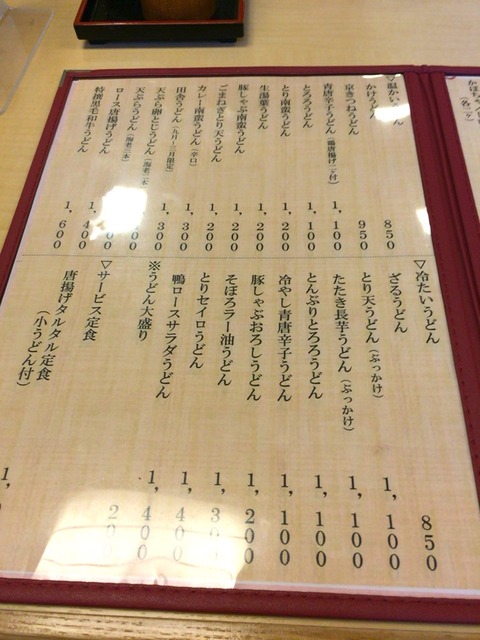 ▽温かいうどん
かけうどん 850
京きつねうどん 950
青唐辛子うどん(鶏唐揚げ一ケ付) 1,100
とろろうどん 1,100
とり南蛮うどん 1,200
生湯葉うどん 1,200
豚しゃぶ南蛮うどん 1,200
ごまねぎとり天うどん 1,200
カレー南蛮うどん(辛口) 1,300
田舎うどん(九月〜三月限定) 1,300
天ぷら卵とじうどん(海老二本)
天ぷらうどん(海老二本)
ロース唐揚げうどん 1,400
特撰黒毛和牛うどん 1,600
▽冷たいうどん
ざるうどん 850
とり天うどん(ぶっかけ) 1,100
たたき長芋うどん(ぶっかけ) 1,100
とんぶりとろろうどん 1,100
冷やし青唐辛子うどん 1,100
豚しゃぶおろしうどん 1,200
そぼろラー油うどん 1,300
とりセイロうどん 1,400
鴨ロースサラダうどん 1,400
※うどん大盛り 200
▽サービス定食
唐揚げタルタル定食
(小うどん付)